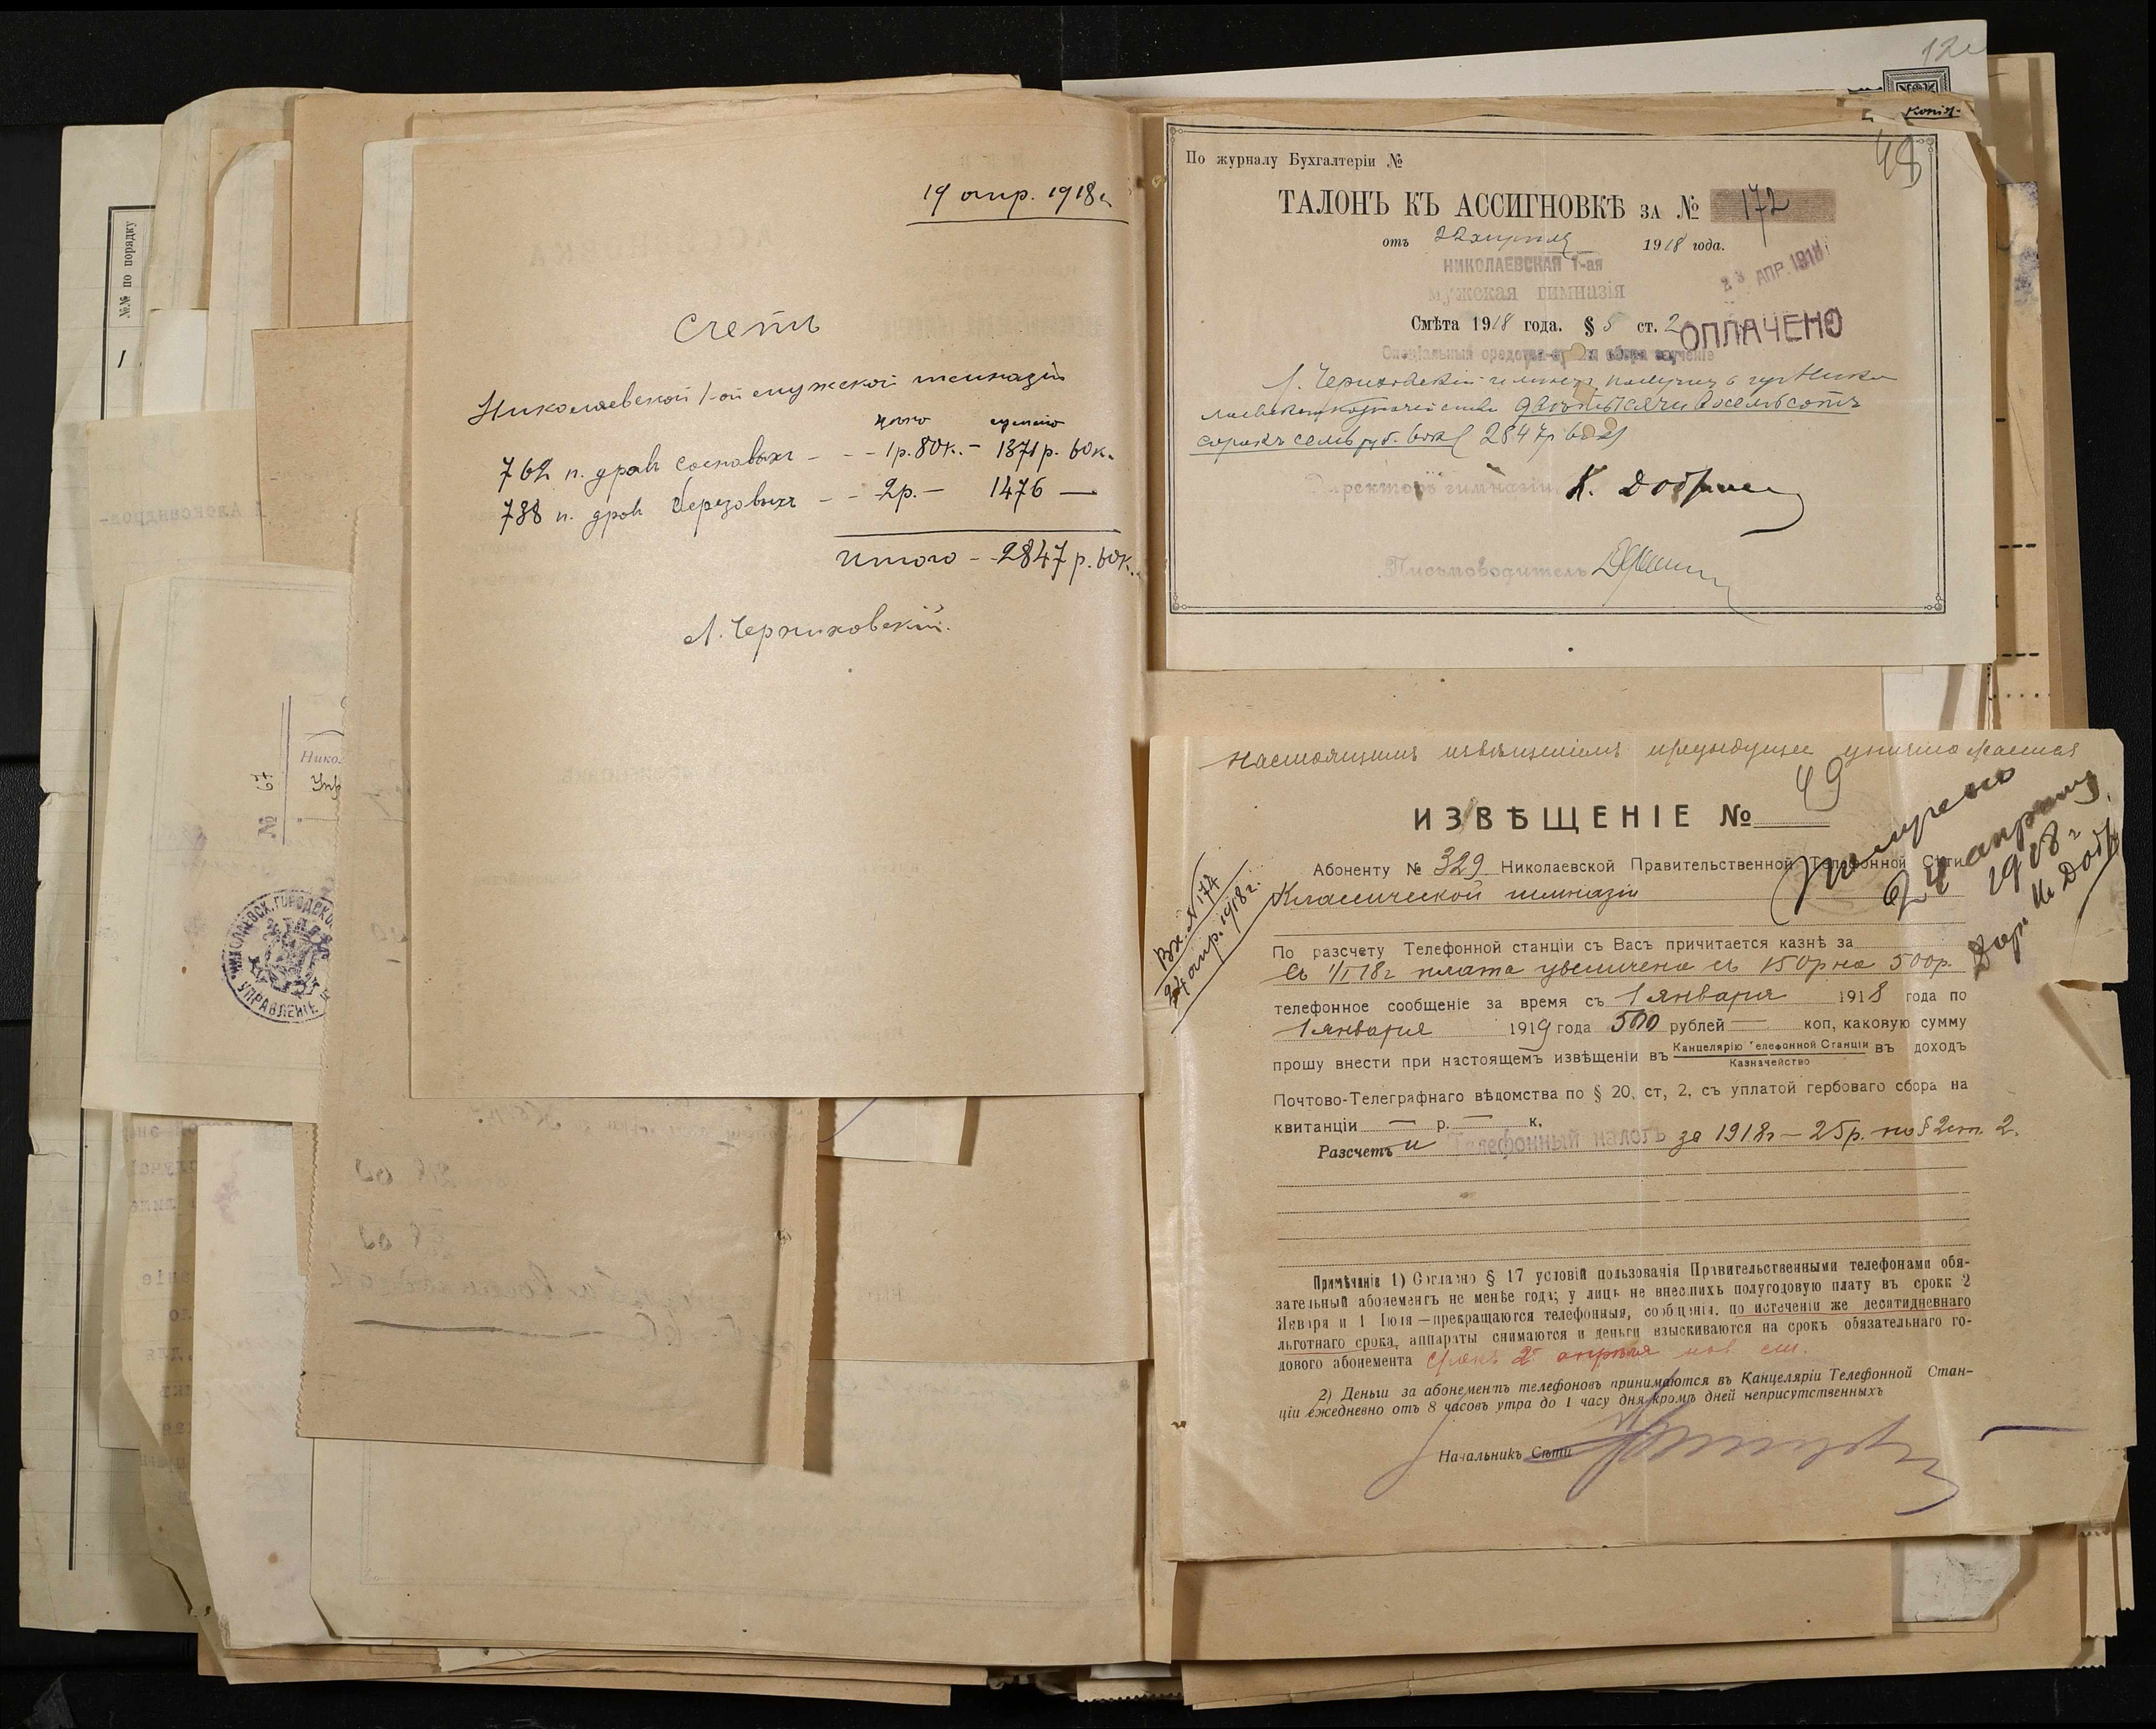 №№ по порядку
1
19 апр. 1918 г.
Счетъ
Николаевской 1-ой мужской гимназіи
цѣна сумма
762 п. дровъ сосновыхъ - - - 1р. 80к. - 1371р. 60к.
738 п. дров березовыхъ - - 2р. - 1476 —
Итого - - 2847 р. 60к.
Л. Черниховскій.
№ 67
Нико
НИКОЛАЕВСК. ГОРОДСК
УПРАВЛЕНІЕ
копія
48
По журналу Бухгалтеріи №
ТАЛОНЪ КЪ АССИГНОВКѢ ЗА № 172
отъ 22 апрѣля 1918 года.
НИКОЛАЕВСКАЯ 1-ая
мужская гимназія
23 АПР. 1918
Смѣта 1918 года. § 5 ст. 2
ОПЛАЧЕНО
Спеціальныя средства
Л. Черниховскій получ. Нико
лаевскомъ казначействѣ двѣ тысячи восемьсотъ
сорокъ семь руб. 60 к. 2847 р 60 к
Директоръ гимназіи
Письмоводитель
Настоящимъ извѣщеніемъ предыдущее уничтожается
49
ИЗВѢЩЕНІЕ №
Получено
24 апрѣля
1918 г
Дир. К. Доб
Вх. № 174
24 апр. 1918 г.
Абоненту № 329 Николаевской Правительственной Телефонной Сѣти
Классической гимназіи
По разсчету Телефонной станціи съ Васъ причитается казнѣ за
Съ 1/I 18 г плата увеличена съ 150р на 500р.
телефонное сообщеніе за время съ 1 января 1918 года по
1 января 1919 года 500 рублей — коп, каковую сумму
прошу внести при настоящемъ извѣщеніи въ Канцелярію Телефонной Станціи въ доходъ
Казначейство
Почтово-Телеграфнаго вѣдомства по § 20, ст, 2, съ уплатой гербоваго сбора на
квитанціи — р. — к.
Разсчетъ и Телефонный налогъ за 1918 г — 25 р. по § 2 ст. 2.
Примѣчаніе 1) Согласно § 17 условій пользованія Правительственными телефонами обя-
зательный абонементъ не менѣе года; у лицъ не внесшихъ полугодовую плату въ сроки 2
Января и 1 Іюля—прекращаются телефонныя, сообщенія. по истеченіи же десятидневнаго
льготнаго срока, аппараты снимаются и деньги взыскиваются на срокъ обязательнаго го-
дового абонемента Срокъ 2 апрѣля нов. ст.
2) Деньги за абонементъ телефоновъ принимаются въ Канцеляріи Телефонной Стан-
ціи ежедневно отъ 8 часовъ утра до 1 часу дня кромѣ дней неприсутственныхъ
Начальникъ Сѣти